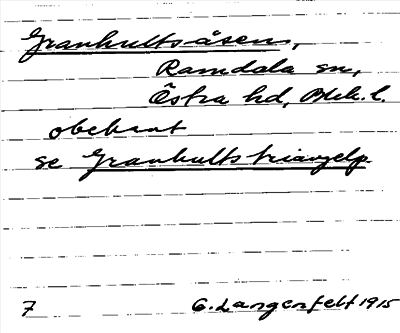 Granhultsåsen,
Ramdala sn,
Östra hd, Blek. l.
obekant
se Granhults triangelp
7 G. Langenfelt 1915